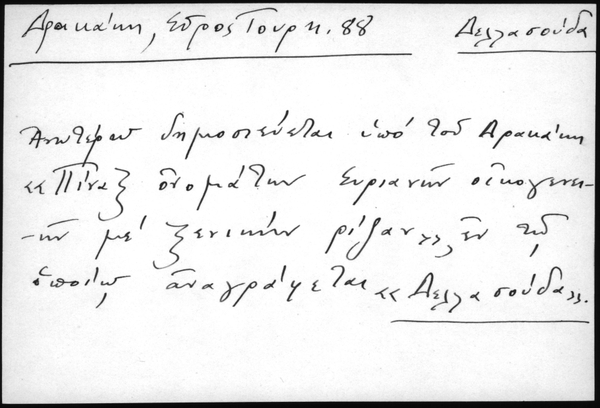 Δρακάκη, Σῦρος Τουρκ. 88 Δελλασούδα
Ἀνωτέρω δημοσιεύεται ὑπό τοῦ Δρακάκη
«Πίναξ ὀνομάτων Συριανῶν οἰκογενει-
-ῶν μέ ξενικήν ρίζαν», ἐν τῷ
ὁποίῳ ἀναγράφεται «Δελλασούδα».